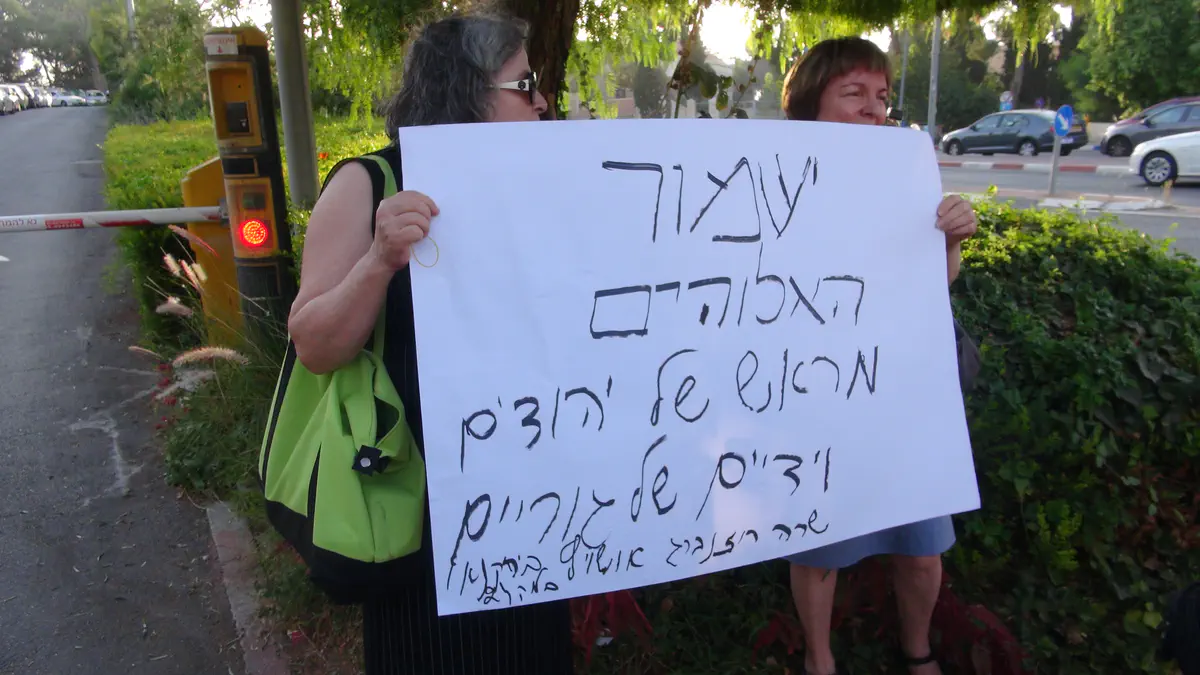 ישמור
האלוהים
מראש של יהודים
וידיים של גוריים
שרה רוזנברג אושויץ בירקנאו